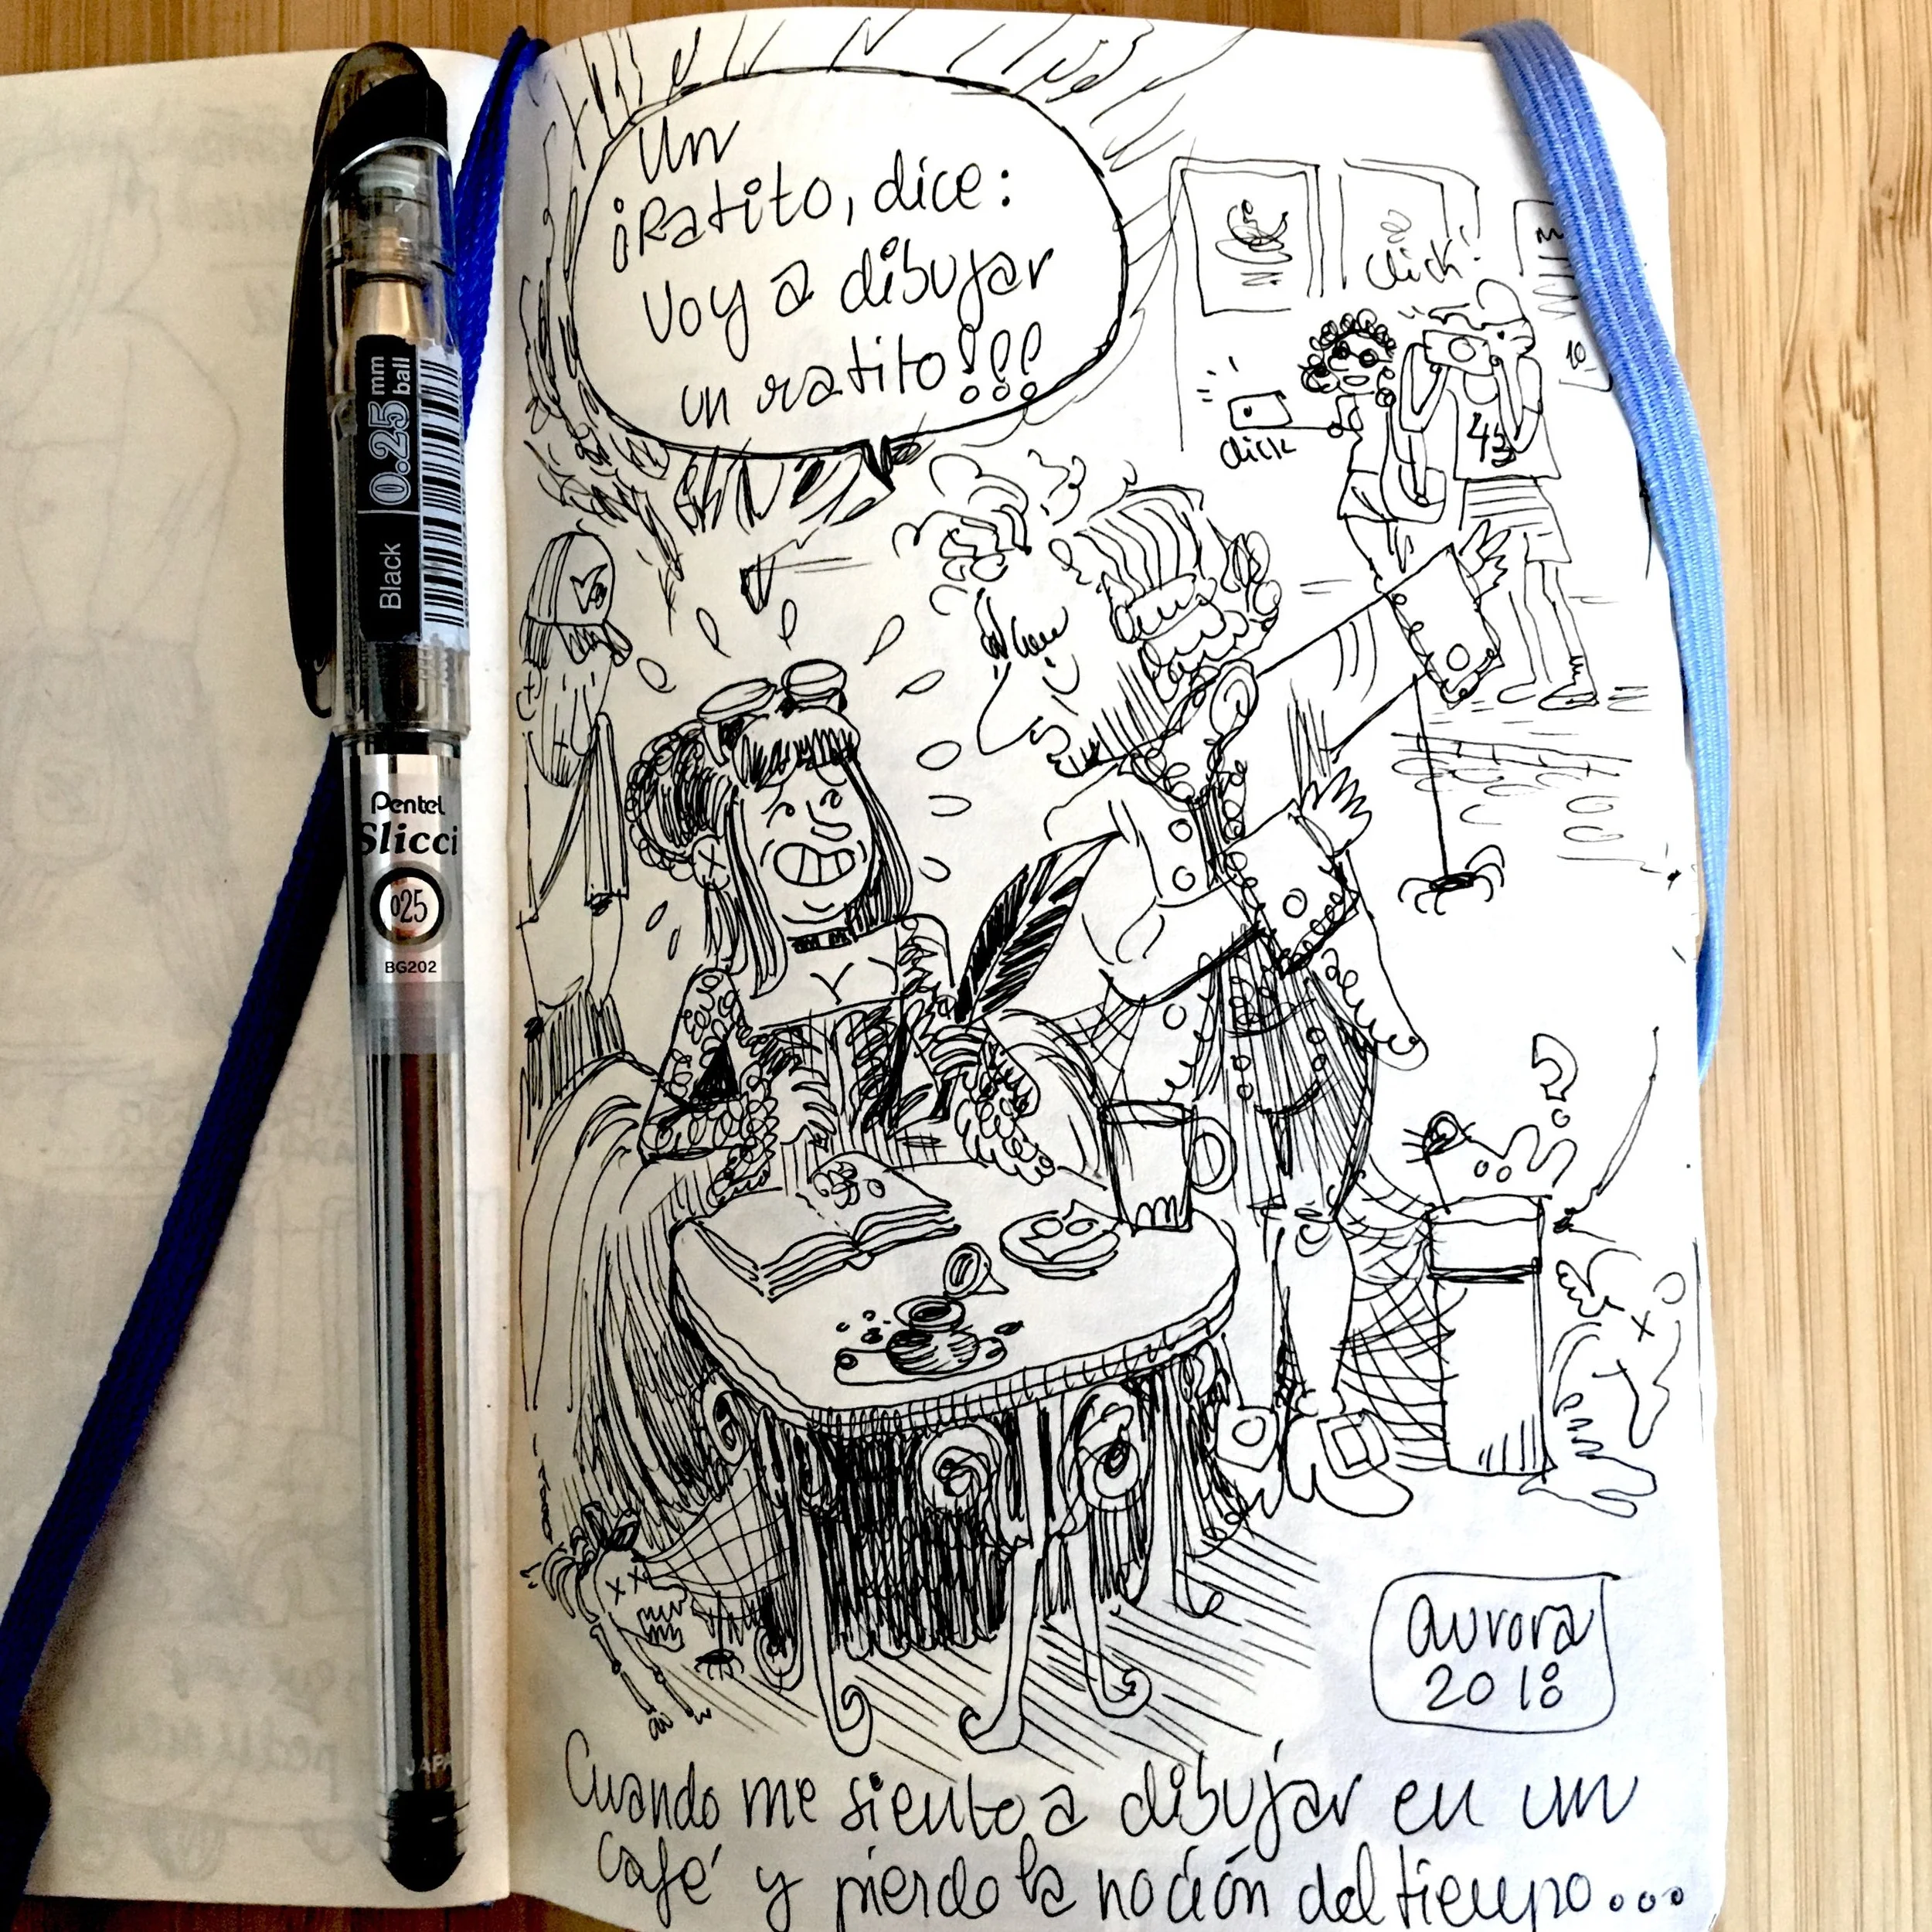 Un
¡Ratito, dice:
voy a dibujar
un ratito!!!
click!
click
43
10
0.25 mm ball
Black
Pentel
Slicci
025
BG202
JAPA
aurora
2018
Cuando me siento a dibujar en un
café y pierdo la noción del tiempo...